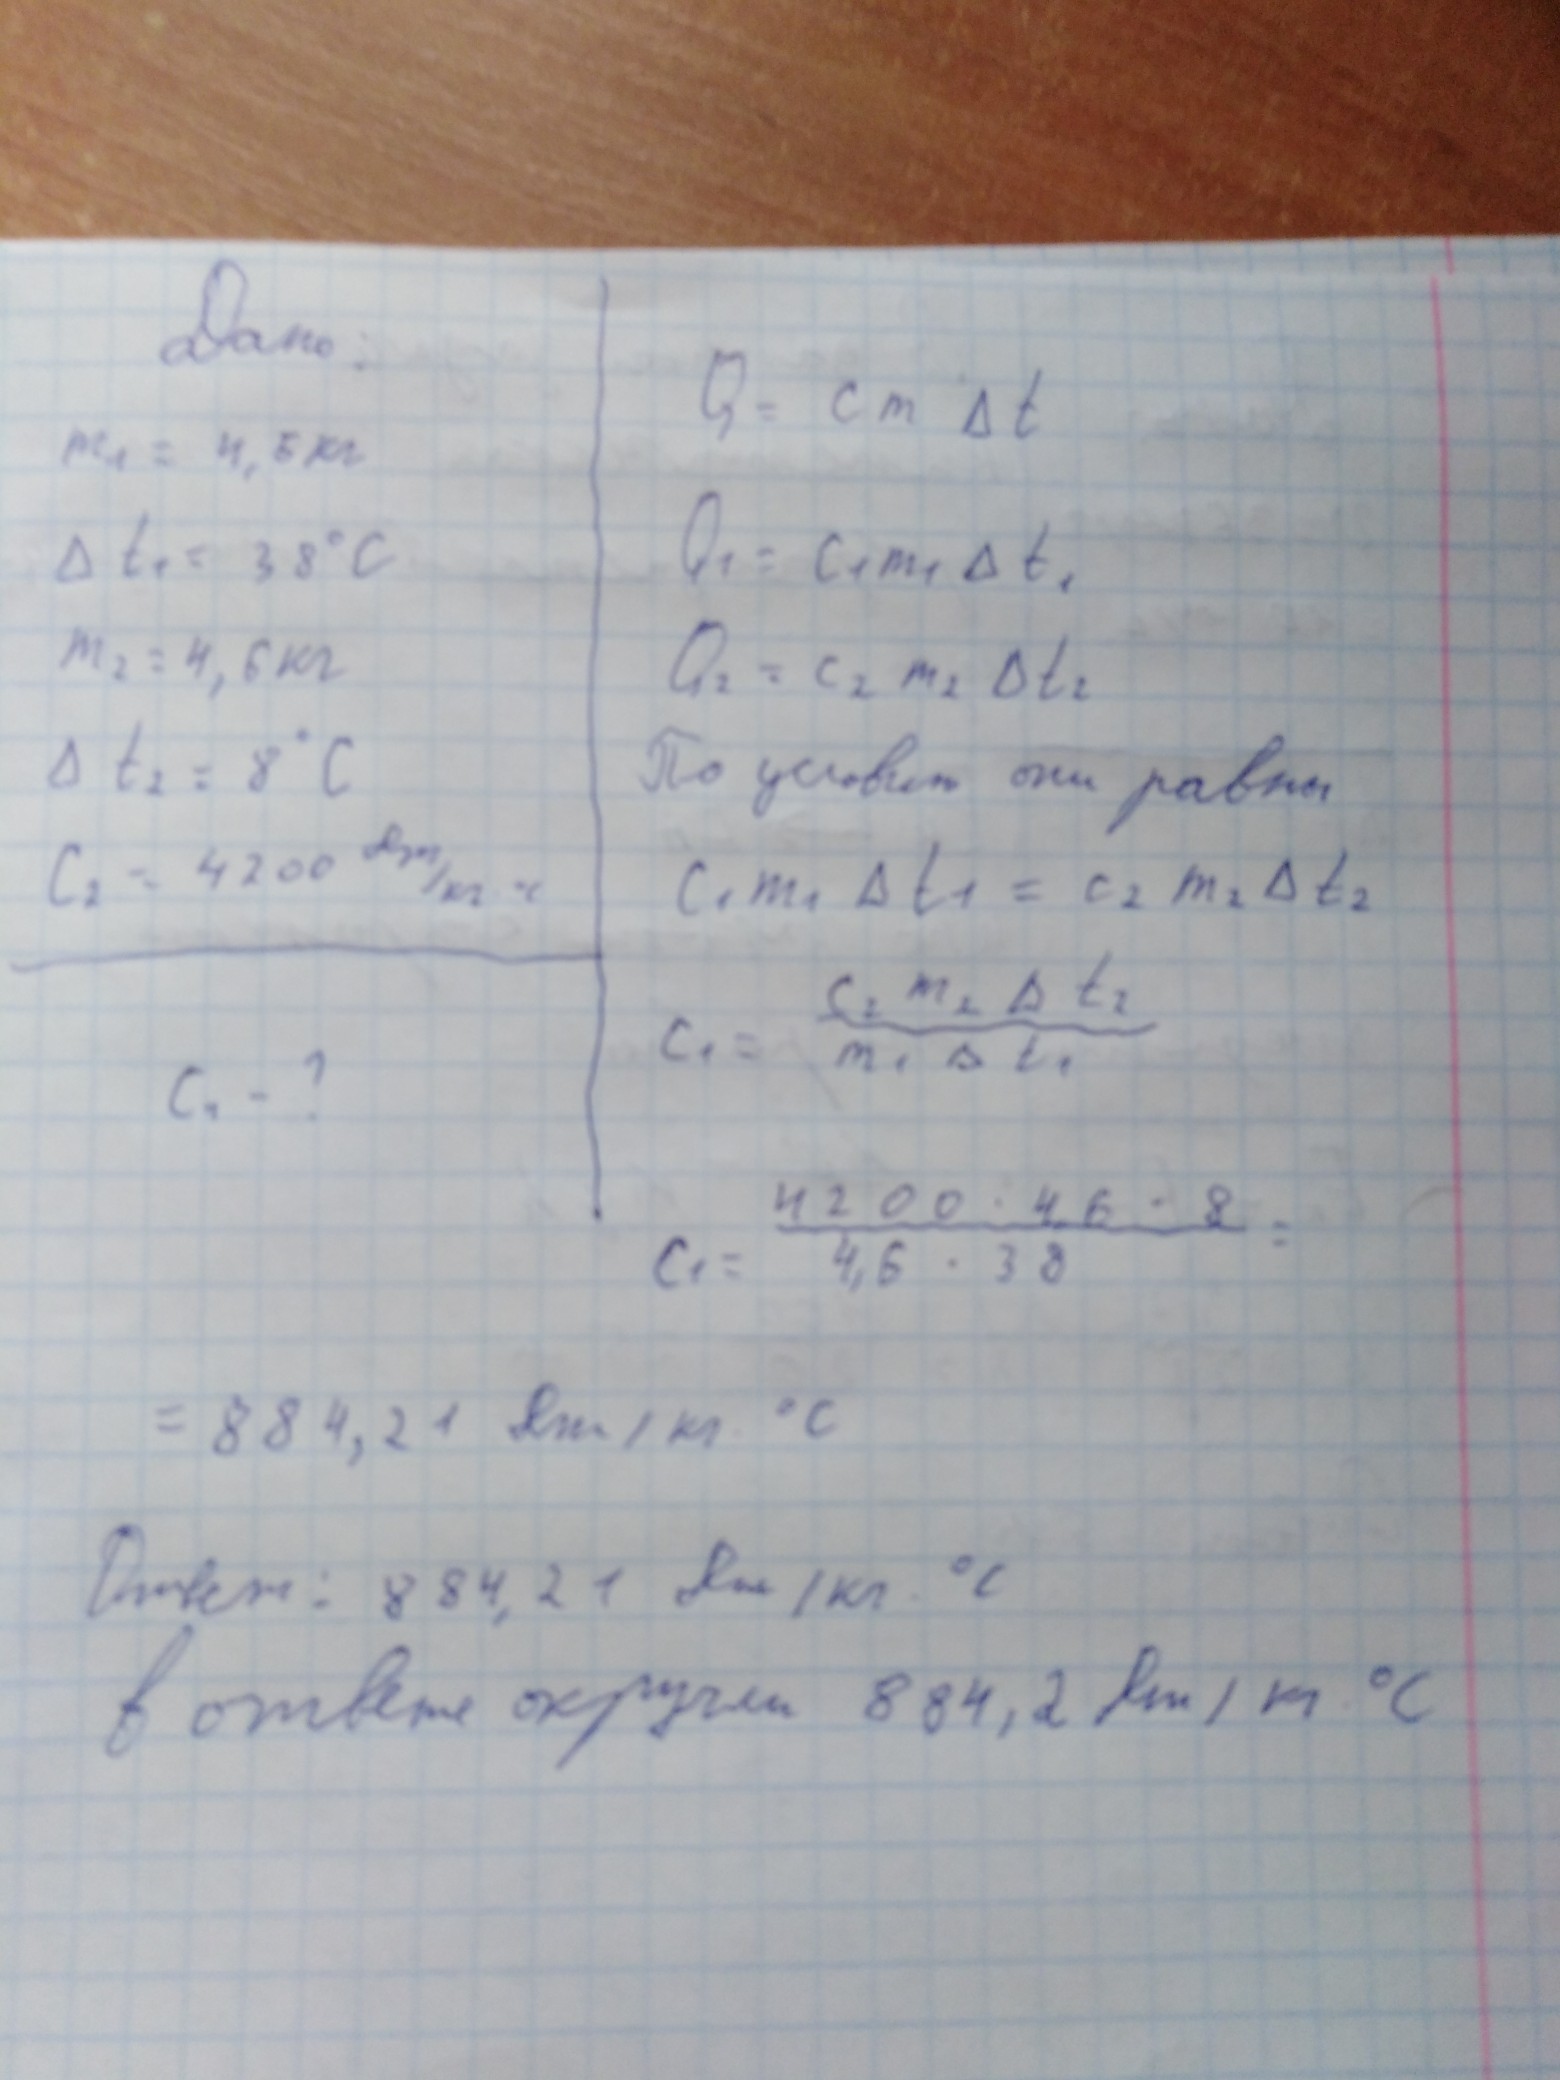 Дано:
m₁ = 4,6 кг
Δt₁ = 38°C
m₂ = 4,6 кг
Δt₂ = 8°C
C₂ = 4200 Дж/кг·°C
C₁ - ?
Q = cmΔt
Q₁ = C₁m₁Δt₁
Q₂ = c₂m₂Δt₂
По условию они равны
C₁m₁Δt₁ = c₂m₂Δt₂
C₁ = c₂m₂Δt₂ / m₁Δt₁
C₁ = 4200 · 4,6 · 8 / 4,6 · 38 =
= 884,21 Дж/кг·°C
Ответ: 884,21 Дж/кг·°C
В ответе округлим 884,2 Дж/кг·°C